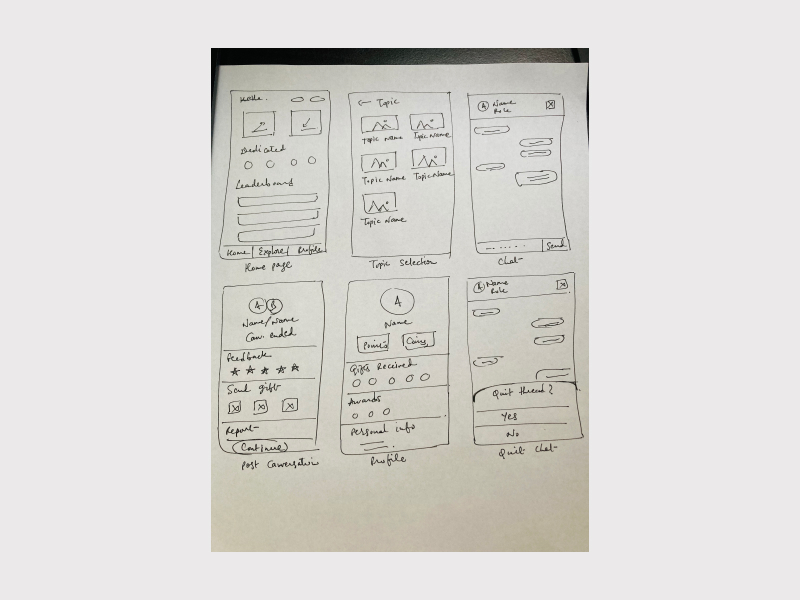 Hello.
Dedicated
Leaderboard
Home Explore Profile
Home page
← Topic
Topic Name Topic Name
Topic Name Topic Name
Topic Name
Topic Selection
A Name
Role
Send
Chat
A B
Name/Name
Conv. ended
Feedback
Send gifts
Report
Continue
Post Conversation
A
Name
Points Coins
Gifts Received
Awards
Personal info
Profile
A Name
Role
Quit thread?
Yes
No
Quit chat